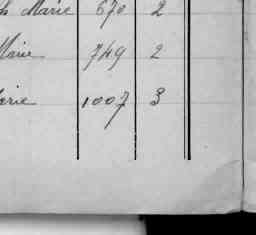 Marie 670 2
Marie 749 2
1007 3